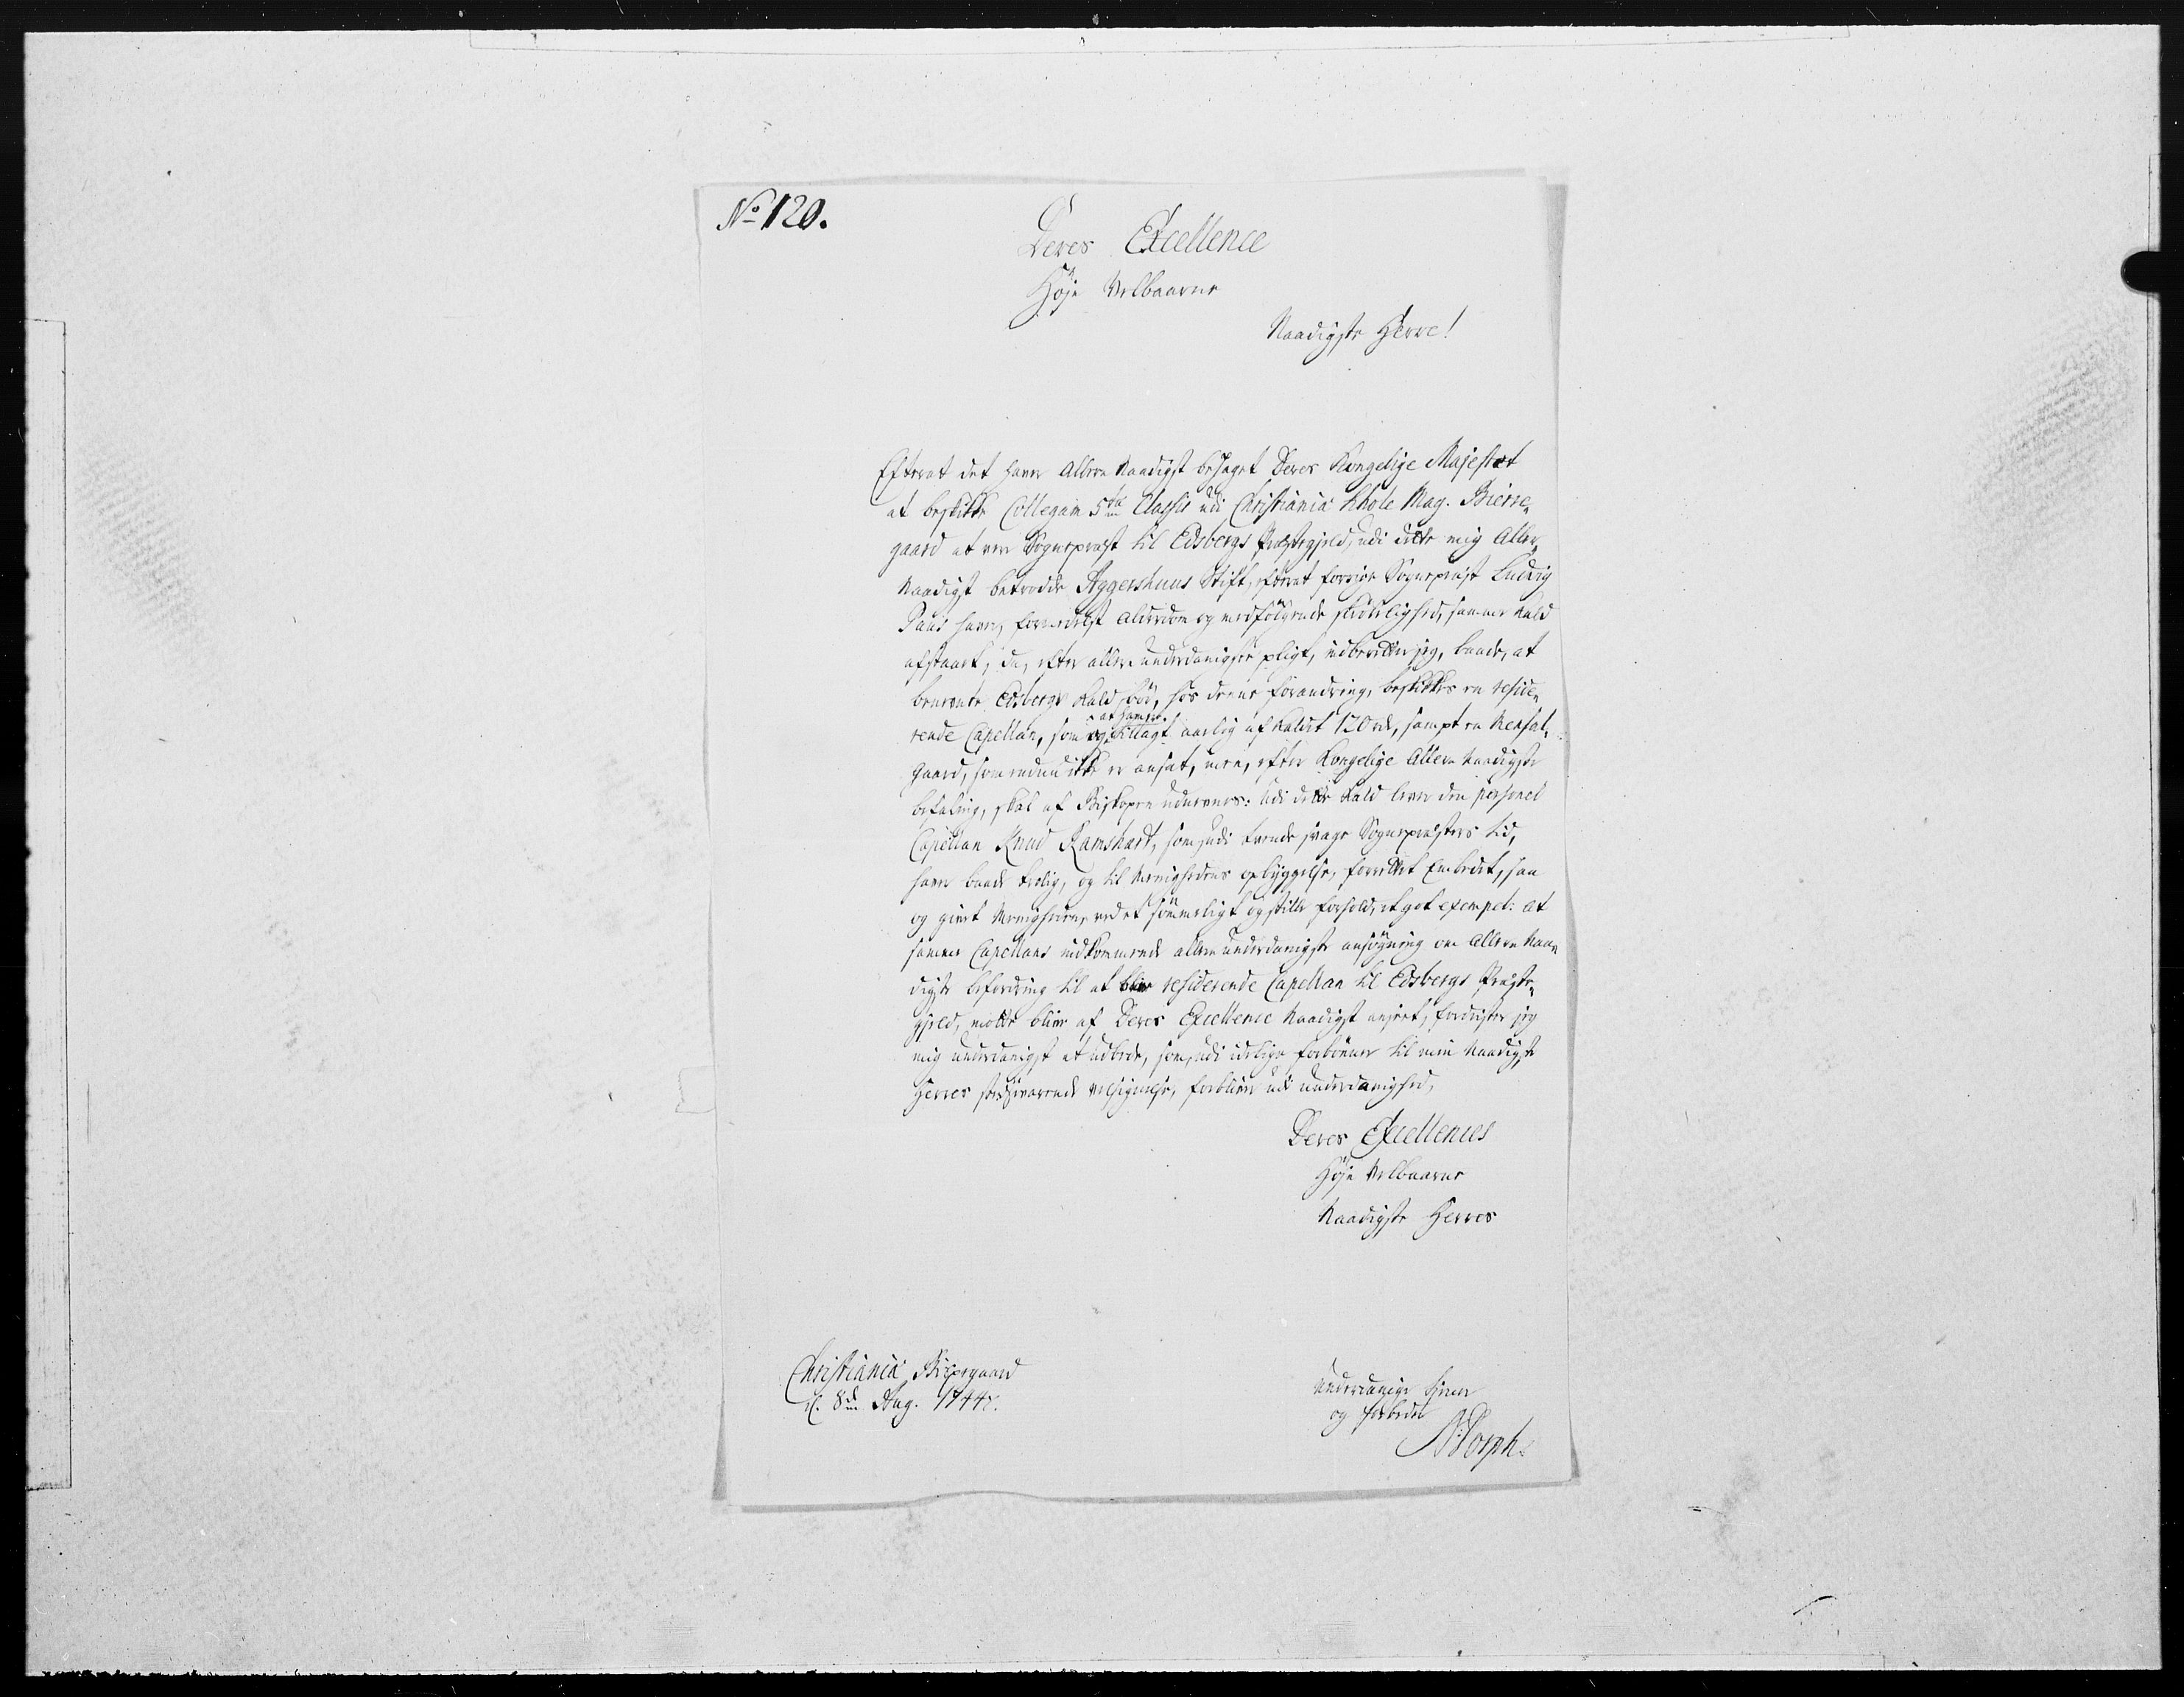 No 120.
Deres Excellence
Høje Velbaarne
Naadigste Herre!
Efterat det haver Allernaadigst behaget Deres Kongelige Majestæt
at beskikke Collegam 5tæ Classis udi Christiania Skole Mag. Bierre-
gaard at være Sogneprest til Edsbergs Præstegield, udi dette mig Aller-
naadigst betroede Aggershuus Stift, efterat forrige Sogneprest Ludvig
Paus haver, formedelst alderdom og medfølgende skrøbelighed, samme Kald
afstaaet; da, efter allerunderdanigste pligt, indberetter jeg, baade, at
benævnte Edsbergs Kald bør, hos denne forandring, beskikkes en reside-
rende Capellan, som og er tillagt aarlig af Kaldet 120 rd, sampt en Mensal-
Gaard, som endnu ikke er ansat, men, efter Kongelige Allernaadigste
befaling, skal af Biskopen udnævnes: Udi dette Kald lever den personel
Capellan Knud Ramshart, som, udi tvende svage Sogneprestes tid,
haver baade troelig, og til Menighedens opbyggelse, forrettet Embedet, saa
og givet Menigheden, ved et sømmeligt og stille forhold, et got exempel: at
samme Capellans indkommende allerunderdanigste ansøgning om Allernaa-
digste befordring til at blive residerende Capellan til Edsbergs Præste-
gield, motte blive af Deres Excellence Naadigst anseet, fordrister jeg
mig underdanigst at udbede, som, udi idelige forbønner til min Naadigste
Herres velsignelse, forbliver udi underdanighed,
Deres Excellences
Høje Velbaarne
Naadigste Herres
Christiania Bispegaard
d. 8de Aug. 1744.
underdanige tiener
og forbeder
N: Dorph.